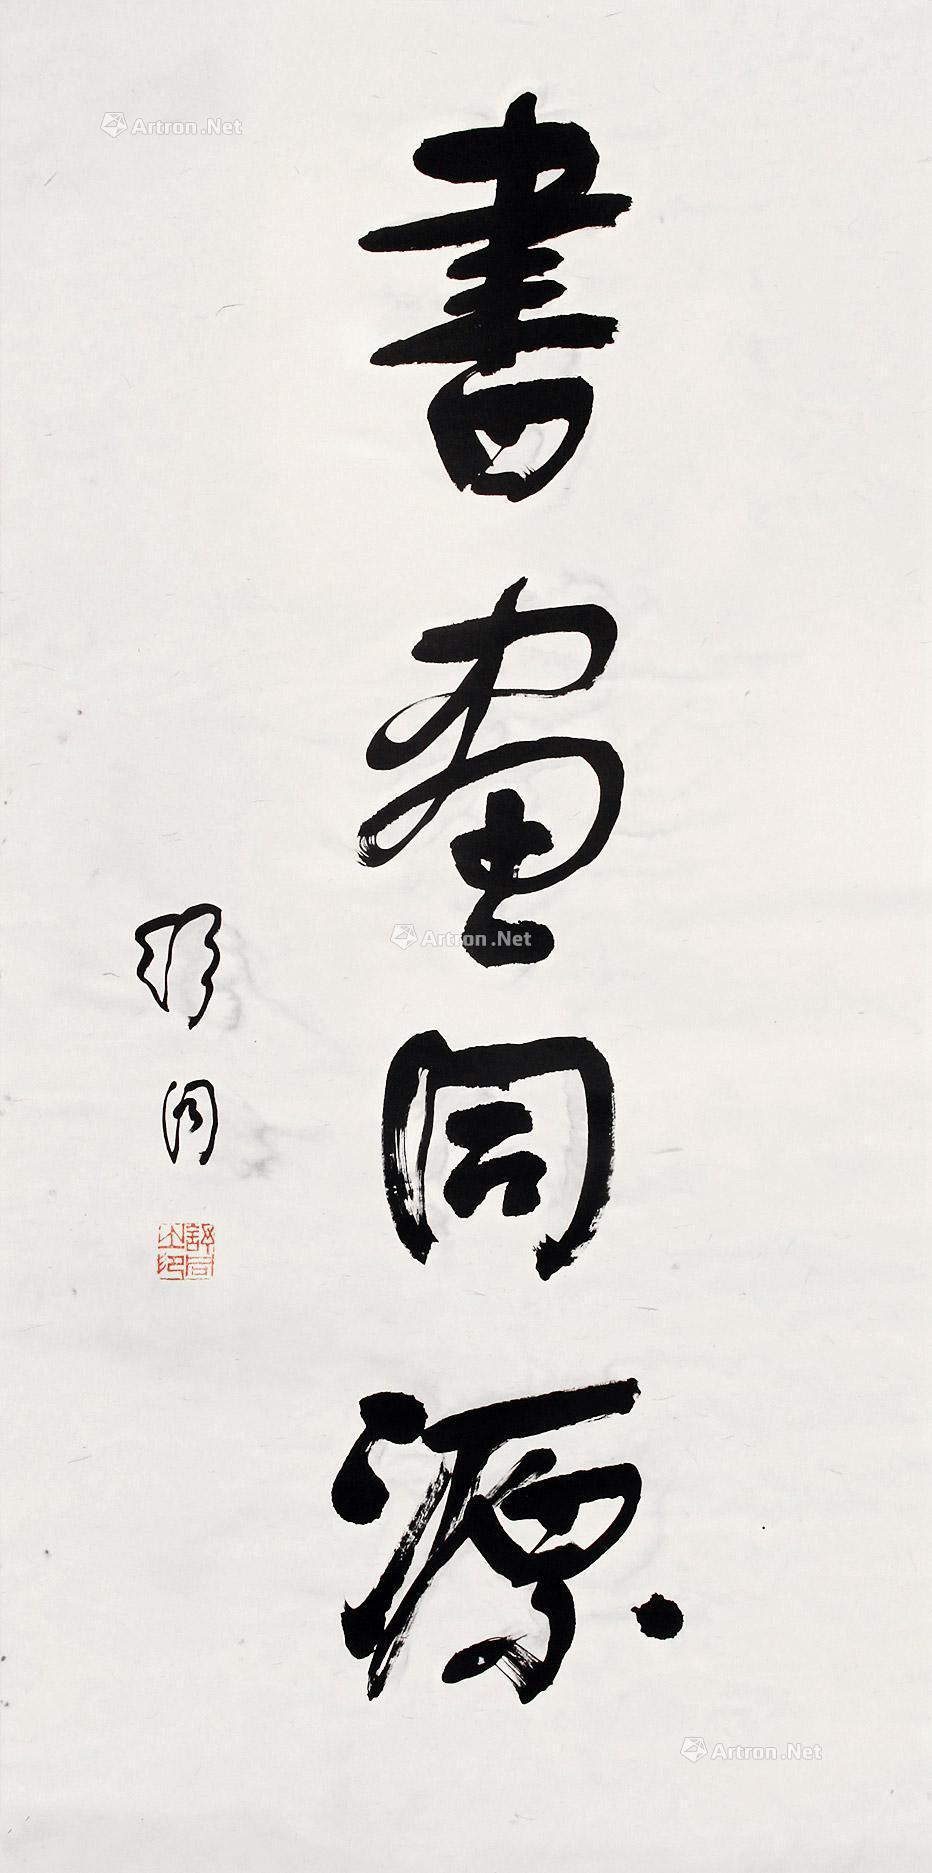 書畫同源
舒同
舒同之印
Artron.Net
Artron.Net
Artron.Net